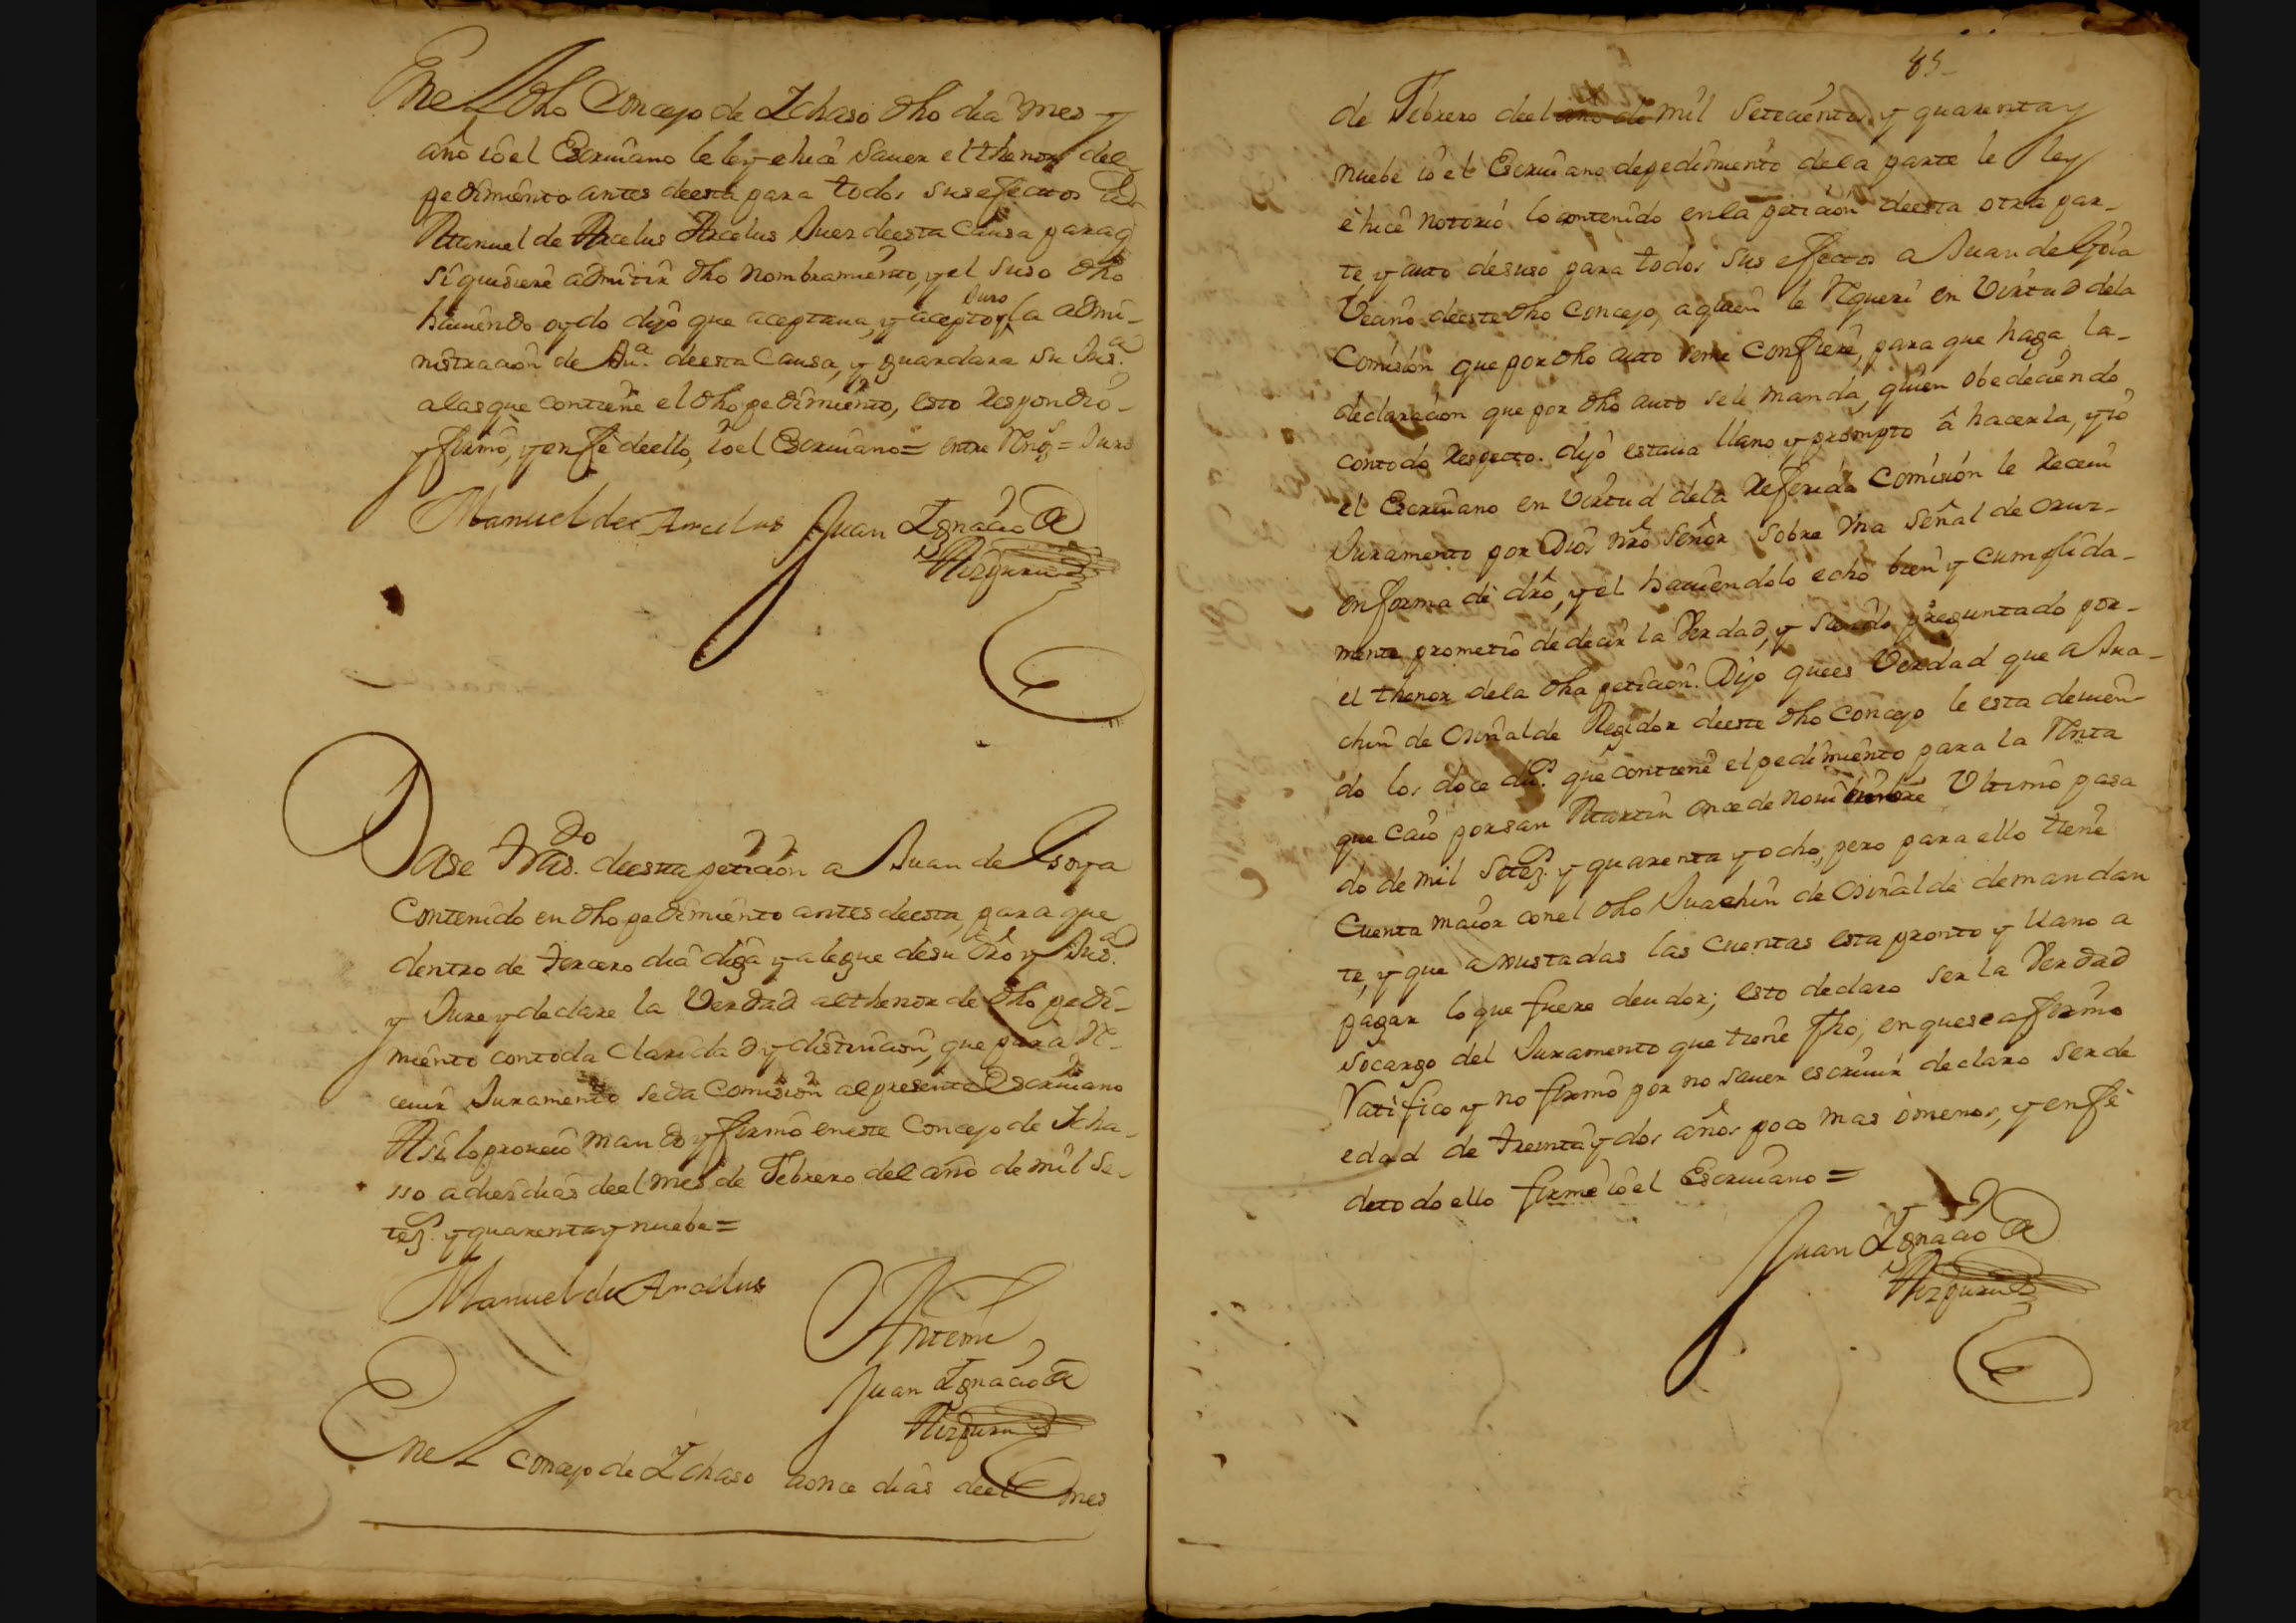 En el dho Concejo de Ichaso dho dia mes y
año io el Escriuano le ley e hice Sauer el thenor del
pedimiento antes deesta para todos sus efectos a
Manuel de Arcelus Arcelus Juez deesta Causa para q
si quisiere admitir dho nombramiento, y el suso dho
hauiendo oydo dijo que aceptaua, y acepto y Juro la admi-
nistracion de Jua. deesta Causa, y guardara su Jusa.
alas que contiene el dho pedimiento, esto Respondio
y firmo, y en fe deello, io el Escriuano = entre Rngs = Juro
Manuel de Arcelus Juan Ignacio de
Aizpuru
Dase trasdo. deesta peticion a Juan de Goya
Contenido en dho pedimiento antes deesta, para que
dentro de tercero dia diga y alegue de su dro y Jusa.
y Jure y declare la Verdad al thenor de dho pedi-
miento con toda Claridad y distincion, que para Re-
ceuir Juramento se da Comision al presente Escriuano
Asi lo proueio mando y firmo en este Concejo de Icha-
sso a dies dias deel mes de Febrero del año de mil se-
tezs. y quarenta y nuebe =
Manuel de Arcelus
Ante mi
Juan Ignacio de
Aizpuru
En el Concejo de Ichaso a once dias deel mes
85
de Febrero deel año de mil Setecientos y quarenta y
nuebe io el Escriuano de pedimiento de la parte le ley
e hice notorio lo contenido en la peticion deesta otra par-
te, y auto de suso para todos sus efectos a Juan de Goia
Vecino deeste dho Concejo, a quien le Requeri en Virtud de la
Comision que por dho auto se me Confiere, para que haga la-
declaracion que por dho auto se le manda, quien obedeciendo
con todo Respecto. dijo estaua llano y prompto â hacerla, y io
el Escriuano en virtud de la Referida Comision le Receui
Juramento por Dios nro Señor sobre Vna Señal de Cruz-
en forma de dro, y el hauiendolo echo bien y cumplida-
mente prometio de decir la Verdad, y siendo preguntado por-
el thenor de la dha peticion. Dijo que es Verdad que a Jua-
chin de Osinalde Regidor deeste dho Concejo le esta deuien-
do los doce dus. que contiene el pedimiento para la Renta
que Caio por san Martin once de nouiembre Vltimo pasa
do de mil Setezs. y quarenta y ocho, pero para ello tiene
Cuenta maior con el dho Juachin de Osinalde demandan
te, y que a Justadas las Cuentas esta pronto y llano a
pagar lo que fuere deudor; esto declaro ser la Verdad
so cargo del Juramento que tiene fho, en que se affirmo
Ratifico y no firmo por no sauer escriuir declaro ser de
edad de treinta y dos años poco mas o menos, y en fe
de todo ello firme io el Escriuano =
Juan Ignacio de
Aizpuru